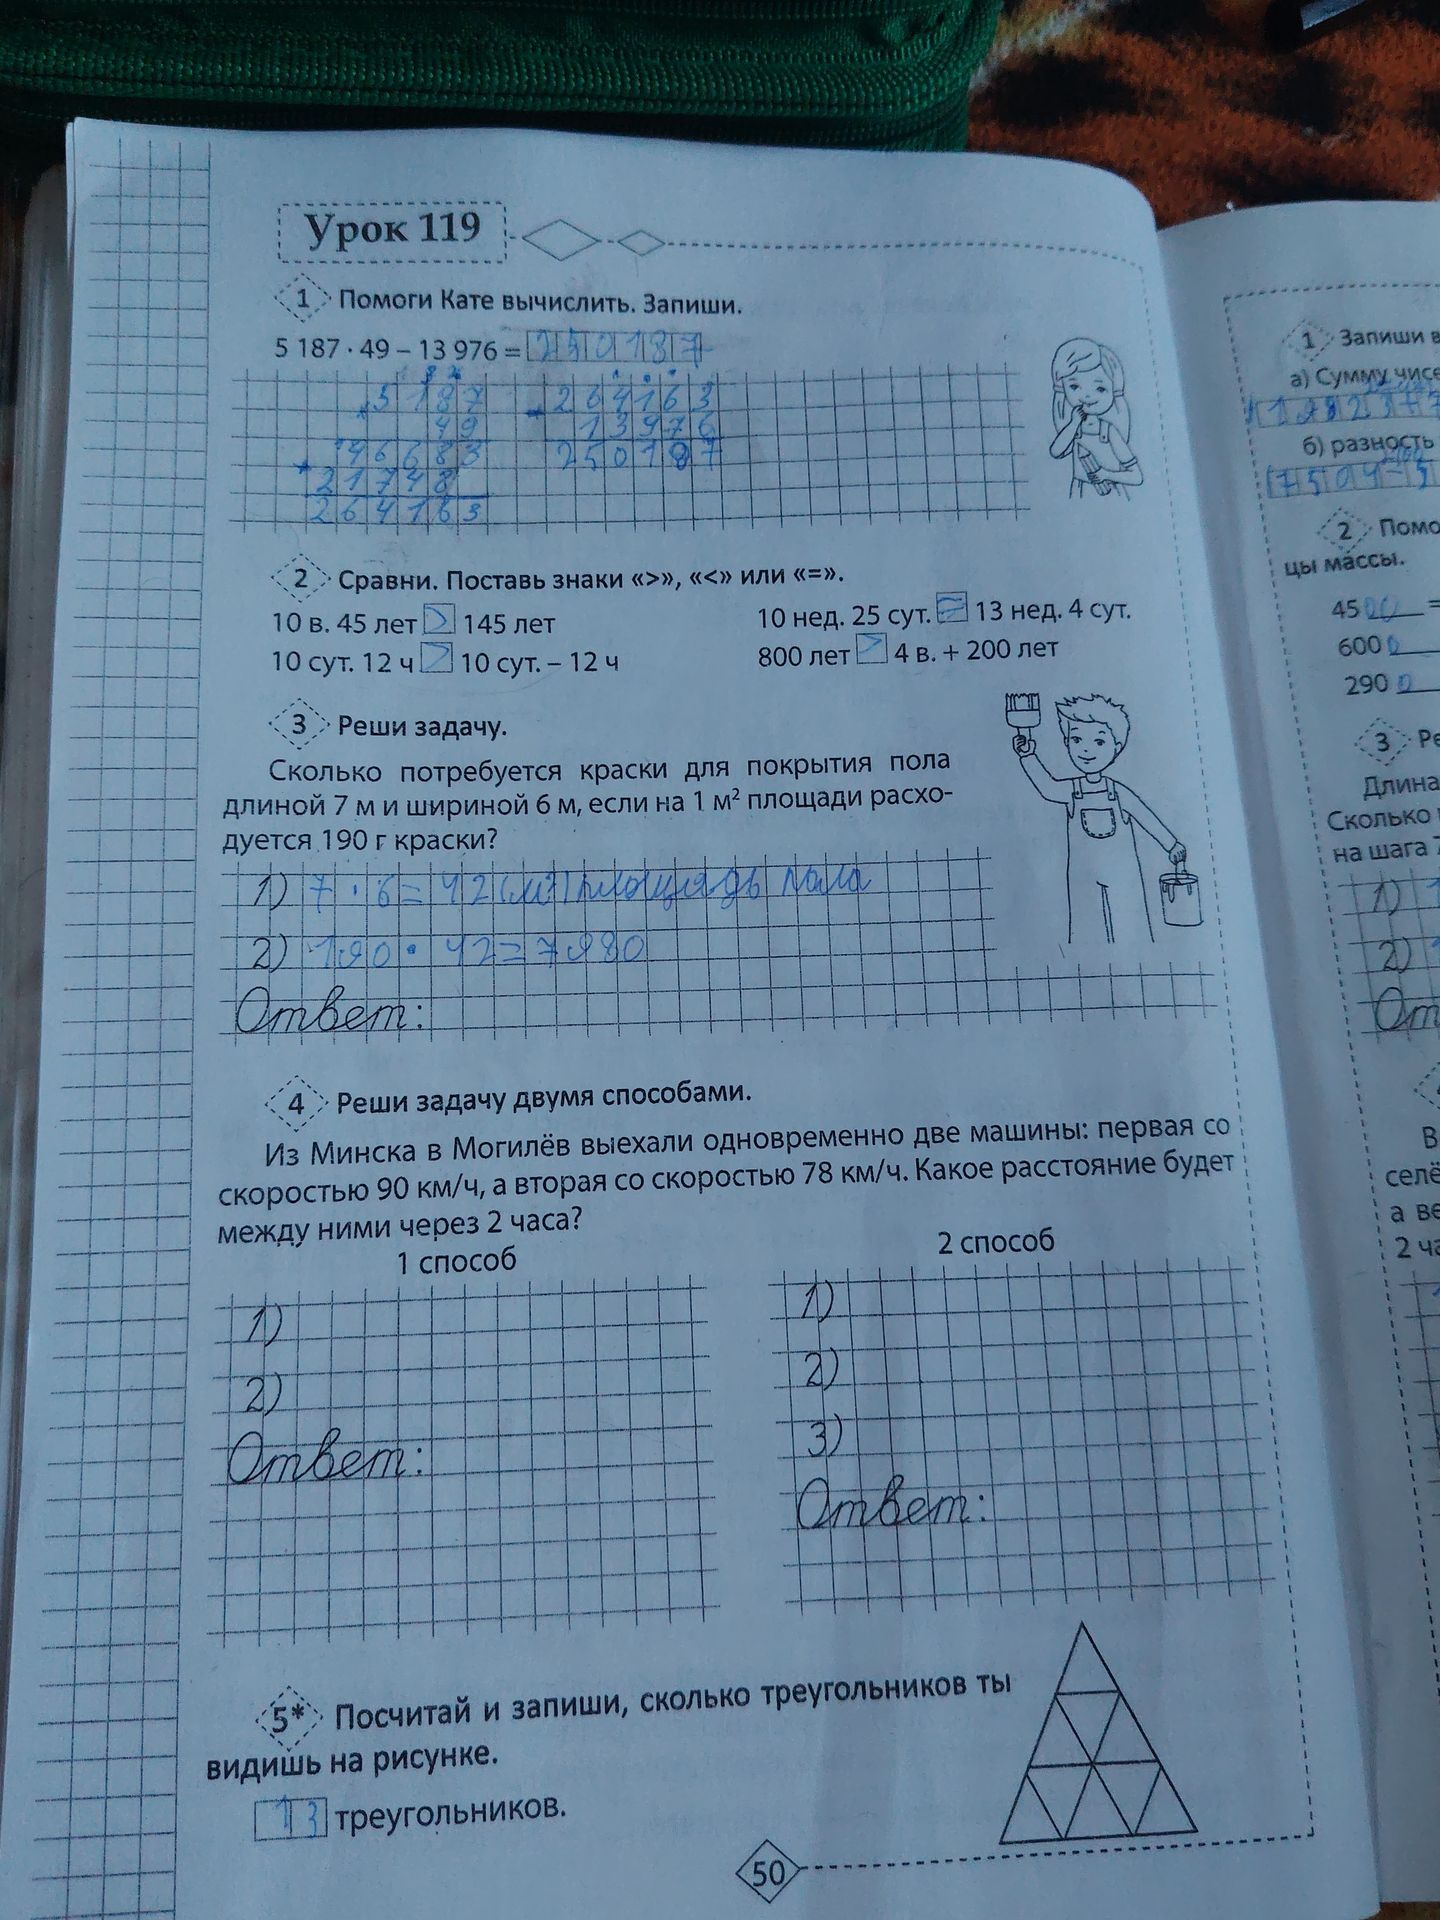 Урок 119
1 Помоги Кате вычислить. Запиши.
5 187 · 49 – 13 976 = 250187
5187
49
46683
21748
264163
264163
13976
250187
2 Сравни. Поставь знаки «>», «<» или «=».
10 в. 45 лет > 145 лет
10 нед. 25 сут. = 13 нед. 4 сут.
10 сут. 12 ч > 10 сут. – 12 ч
800 лет > 4 в. + 200 лет
3 Реши задачу.
Сколько потребуется краски для покрытия пола
длиной 7 м и шириной 6 м, если на 1 м² площади расхо-
дуется 190 г краски?
1) 7 · 6 = 42 (м²) площадь пола
2) 190 · 42 = 7980
Ответ:
4 Реши задачу двумя способами.
Из Минска в Могилёв выехали одновременно две машины: первая со
скоростью 90 км/ч, а вторая со скоростью 78 км/ч. Какое расстояние будет
между ними через 2 часа?
1 способ
2 способ
1)
2)
Ответ:
1)
2)
3)
Ответ:
5* Посчитай и запиши, сколько треугольников ты
видишь на рисунке.
13 треугольников.
50
1 Запиши в
а) Сумму чисе
б) разность
2 Помо
цы массы.
4500 =
6000
2900
3 Ре
Длина
Сколько
на шага 7
1)
2)
От
В
селё
а ве
2 ча